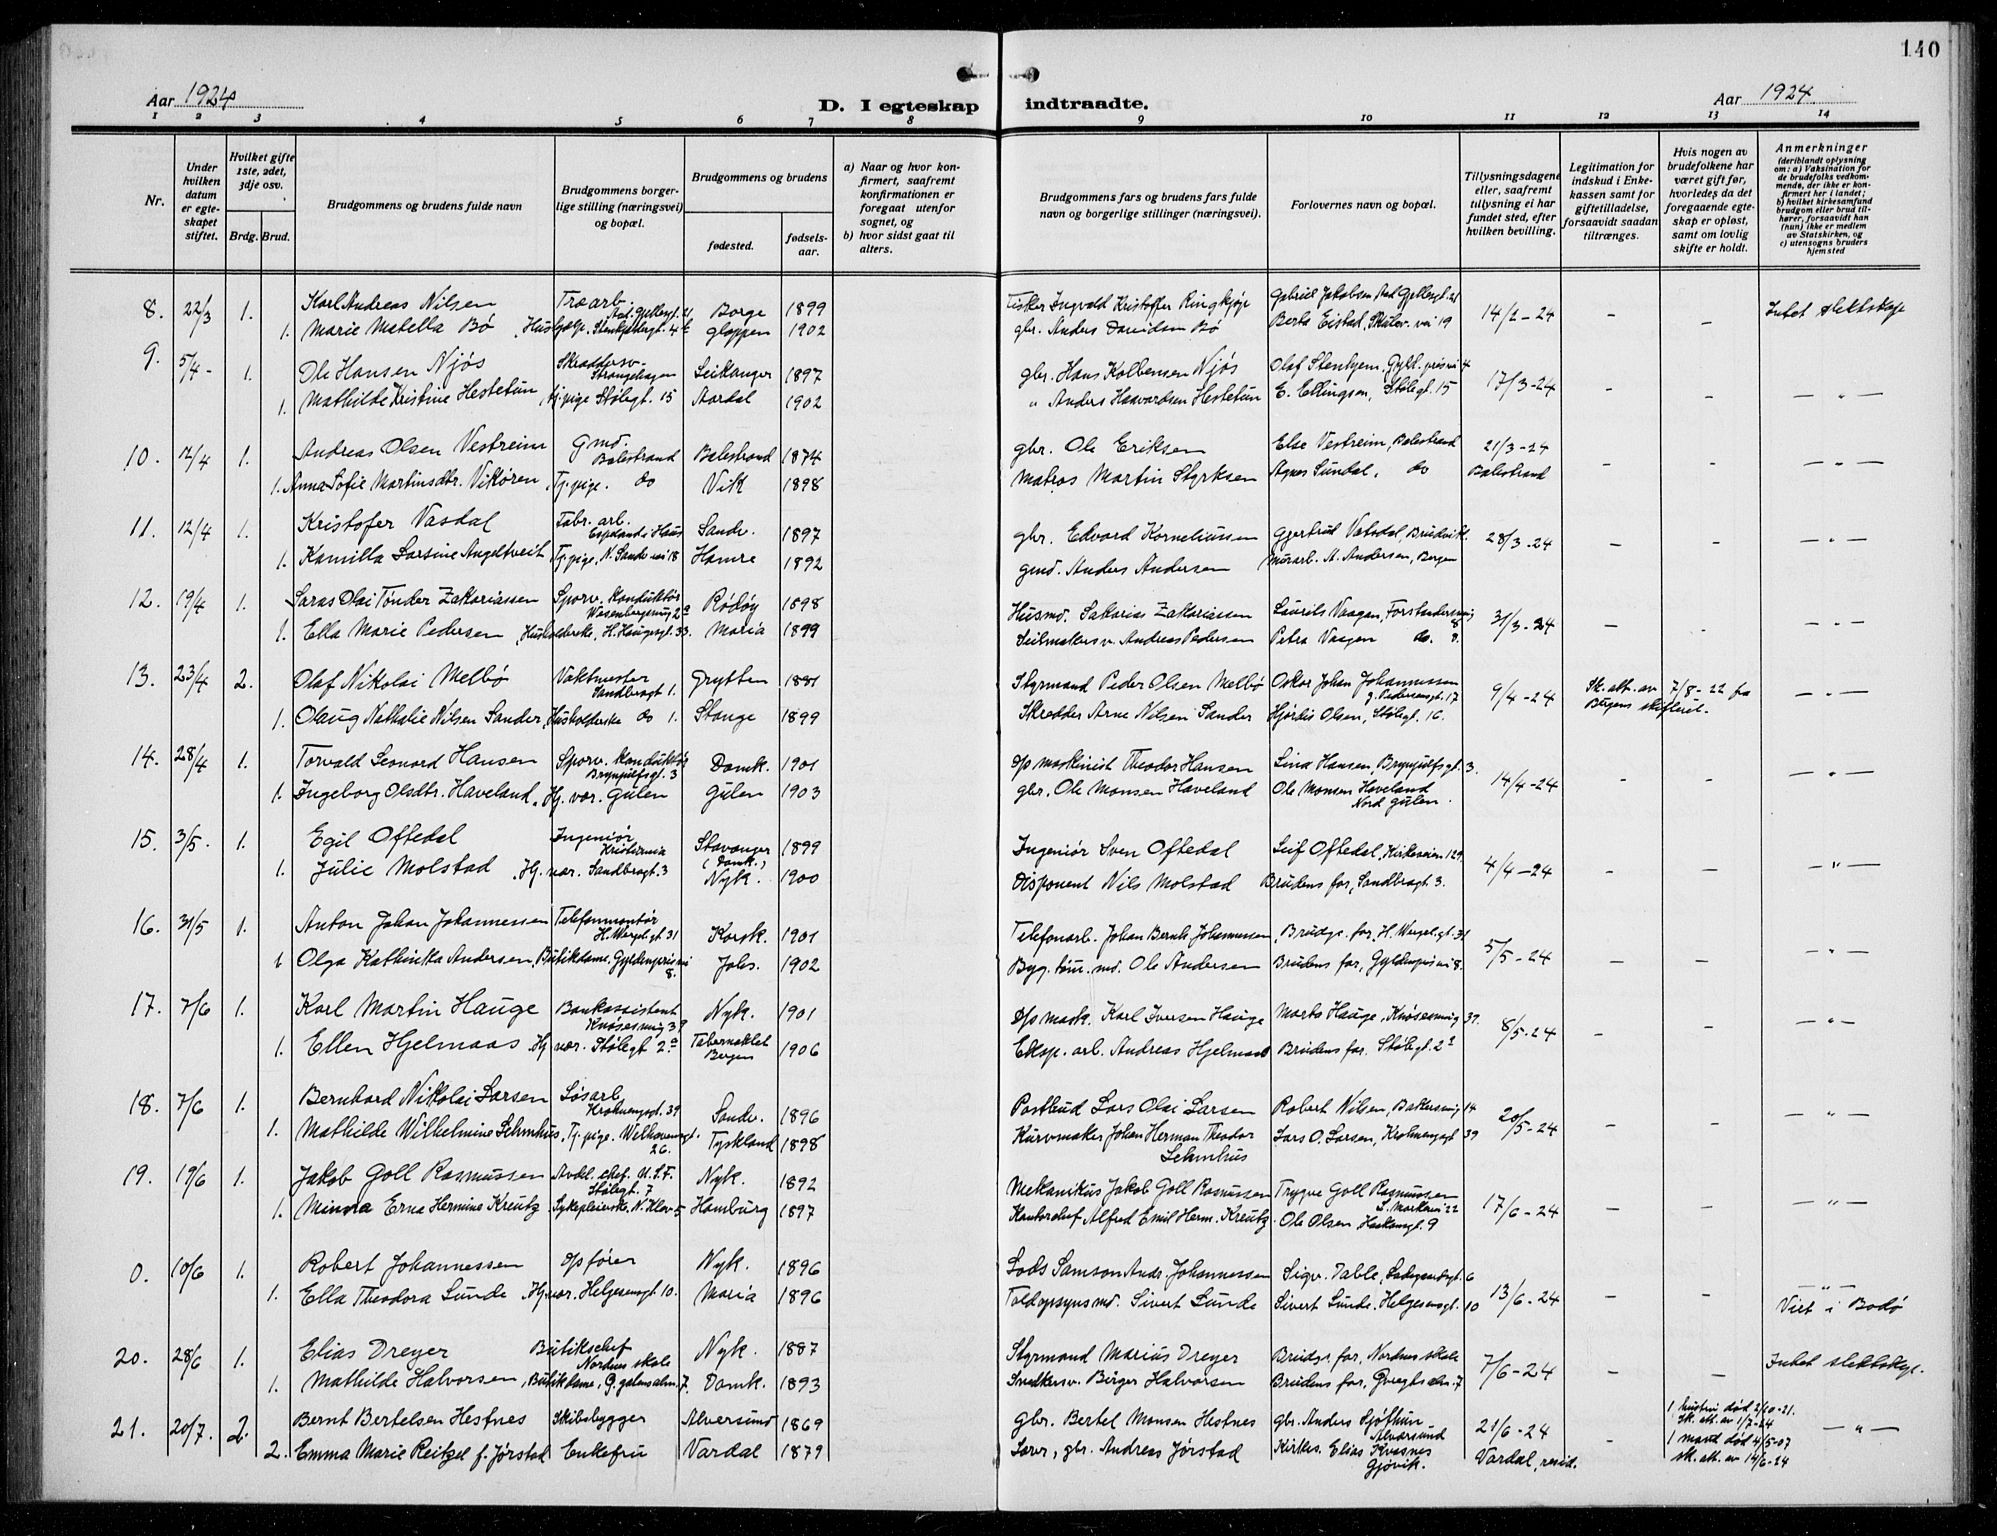 140
Aar 1924
D. I egteskap indtraadte.
Aar 1924
1 2 3 4 5 6 7 8 9 10 11 12 13 14
Nr.
Under hvilken datum er egteskapet stiftet.
Hvilket gifte 1ste, 2det, 3dje osv.
Brdg. Brud.
Brudgommens og brudens fulde navn
Brudgommens borgerlige stilling (næringsvei) og bopæl.
Brudgommens og brudens
fødested.
fødselsaar.
a) Naar og hvor konfirmert, saafremt konfirmationen er foregaat utenfor sognet, og
b) hvor sidst gaat til alters.
Brudgommens fars og brudens fars fulde navn og borgerlige stillinger (næringsvei).
Forlovernes navn og bopæl.
Tillysningsdagene eller, saafremt tillysning ei har fundet sted, efter hvilken bevilling.
Legitimation for indskud i Enkekassen samt for giftetilladelse, forsaavidt saadan tiltrænges.
Hvis nogen av brudefolkene har været gift før, hvorledes da det foregaaende egteskap er opløst, samt om lovlig skifte er holdt.
Anmerkninger (deriblandt oplysning om: a) Vaksination for de brudefolks vedkommende, der ikke er konfirmert her i landet; b) hvilket kirkesamfund brudgom eller brud tilhører, forsaavidt han (hun) ikke er medlem av Statskirken, og c) utensogns bruders hjemsted
8. 22/3 1. Karl Andreas Nilsen Træarb. Borge 1899 Fisker Ingvald Kristoffer Ringkjøp Gabriel Jakobsen 14/2-24 - - Intet slektskap
1. Marie Matella Bø Gloppen 1902 gbr. Anders Davidsen Bø Berta Eistad, Skulev. vei 19
9. 5/4- 1. Ole Hansen Njøs Skræddersv. Strangehagen Leikanger 1897 gbr. Hans Kolbensen Njøs 17/3-24 - - — " —
1. Mathilde Kristine Hestetun, tj.pige Stølegt. 15 Aardal 1902 " Anders Haavardsen Hestetun E. Ellingsen, Stølegt. 15
10. 12/4 1. Andreas Olsen Vestreim Gmd. Balestrand Balestrand 1874 gbr. Ole Eriksen Else Vestreim, Balestrand 21/3-24 - - — " —
1. Anna Sofie Martinsdtr. Vikøren, Tj.pige. do Vik 1898 Matros Martin Styrksen Agnes Sundal, do Balestrand
11. 12/4 1. Kristofer Vasdal Fabr. arb. Espeland i Haus Sandv. 1897 gbr. Edvard Korneliussen Gjertrud Vatsdal, Brudvik. 28/3-24 - - — " —
1. Kamilla Larsine Angeltveit Tj.pige, N. Sandv. vei 18 Hamre 1892 gmd. Anders Andersen Murarb. A. Andersen, Bergen
12. 19/4 1. Laras Olai Tønder Zakariassen Sporv. Konduktør Rødøy 1898 Husmd. Sakarias Zakariassen Laurits Vaagen, 31/3-24 - - — " —
1. Ella Marie Pedersen, Husholderske, H. Haugesgt. 33. Maria 1899 Seilmakersv. Andreas Pedersen Petra Vaagen do. 8.
13. 23/4 2. Olaf Nikolai Melbø Vaktmester Sandbrogt 1. Grytten 1881 Styrmand Peder Olsen Melbø Oskar Johan Johannessen 9/4-24 Sk. att. av 7/8-22 fra Bergens skifteret. — " —
1. Olaug Nathalie Nilsen Sander, Husholderske do 1. Stange 1899 Skredder Arne Nilsen Sander Hjørdis Olsen, Stølegt. 16.
14. 28/4 1. Torvald Leonard Hansen Sporv. Konduktør Brynjulfsgt. 3 Domk. 1901 D/s maskinist Theodor Hansen Lina Hansen Brynjulfsgt. 3. 14/4-24 - - — " —
1. Ingeborg Olsdtr. Haveland, Hj. vær. Gulen Gulen 1903 gbr. Ole Monsen Haveland Ole Monsen Haveland Nord Gulen.
15. 3/5. 1. Egil Oftedal Ingeniør Kristiania Stavanger (Domk.) 1899 Ingeniør Sven Oftedal Leif Oftedal, Kirkeveien 129. 4/4-24 - - — " —
1. Julie Molstad, Hj. vær. Sandbrogt. 3 Nyk. 1900 Disponent Nils Molstad Brudens far, Sandbrogt. 3.
16. 31/5 1. Anton Johan Johannessen Telefonmontør H. Wergel.gt 31 Korsk. 1901 Telefonarb. Johan Bernh. Johannessen, Brudgs. far, H. Wergel.gt. 31 5/5-24 - - — " —
1 Olga Kathinka Andersen, Butikdame, Gyldenprisvei 8. Johs. 1902 Byg. tøm. md. Ole Andersen Brudens far, Gyldenprisvei 8.
17. 7/6 1. Karl Martin Hauge Bankassistent Knøsesmug 39 Nyk. 1901 D/s mask. Karl Iversen Hauge Marta Hauge, Knøsesmug 39. 8/5-24 - - — " —
1. Ellen Hjelmaas, Hj vær. Stølegt 2a Tabernaklet Bergen 1906 Eksp. arb. Andreas Hjelmaas Brudens far, Stølegt. 2a
18. 7/6 1. Bernhard Nikolai Larsen Løsarb. Krohnengsgt. 39 Sandv. 1896 Postbud Lars Olai Larsen Robert Nilsen, Bakkersmug 14 20/5-24 - - — " —
1. Mathilde Wilhelmine Lehmhus, Tj.pige. Welhavensgt. 26. Tyskland 1898 Kurvmaker Johan Herman Theodor Lehmhus Lars O. Larsen, Krohnengsgt 39
19. 19/6 1. Jakob Goll Rasmussen Avdel. chef. Stølegt. 7 Nyk. 1892 Mekanikus Jakob Goll Rasmussen Trygve Goll Rasmussen 17/6-24 - - — " —
1. Minna Erna Hermine Kreutz, Sykepleierske, N. Klov. 5 Hamburg 1897 Kontorchef Alfred Emil Herm. Kreutz. Ole Olsen Haakonsgt. 9
0. 10/6 1. Robert Johannessen D/s fører Nyk. 1896 Lods Samson Andr. Johannessen Sigv. Dable, Ladegaardsgt. 6 13/6-24 - - — " —
1. Ella Theodora Sunde, Hj.vær. Helgesensgt 10. Maria 1896 Toldopsynsmd. Sivert Sunde Sivert Sunde, Helgesensgt. 10 Viet i Bodø
20. 28/6 1. Elias Dreyer Butikschef Nordnes skole Nyk. 1887 Styrmand Marius Dreyer Brudgs. far, Nordnes skole 7/6-24 - - Intet slektskap.
1. Mathilde Halvorsen, Butikdame, 7. Domk. 1893 Snedkersv. Birger Halvorsen Brudens far, 7
21. 20/7. 2. Bernt Bertelsen Hestnes Skibsbygger Alversund 1869 gbr. Bertel Monsen Hestnes gbr. Anders Sjøthun Alversund 21/6-24 - 1 hustru død 2/10-21. Sk. att. av 1/7-24 — " —
2. Emma Marie Reitzel f. Jørstad Enkefru Vardal 1879 gbr. Andreas Jørstad Kirkes. Elias Kvasnes Gjøvik. Vardal, resid. 1 mand død 4/5-07 sk. att. av 14/6-24